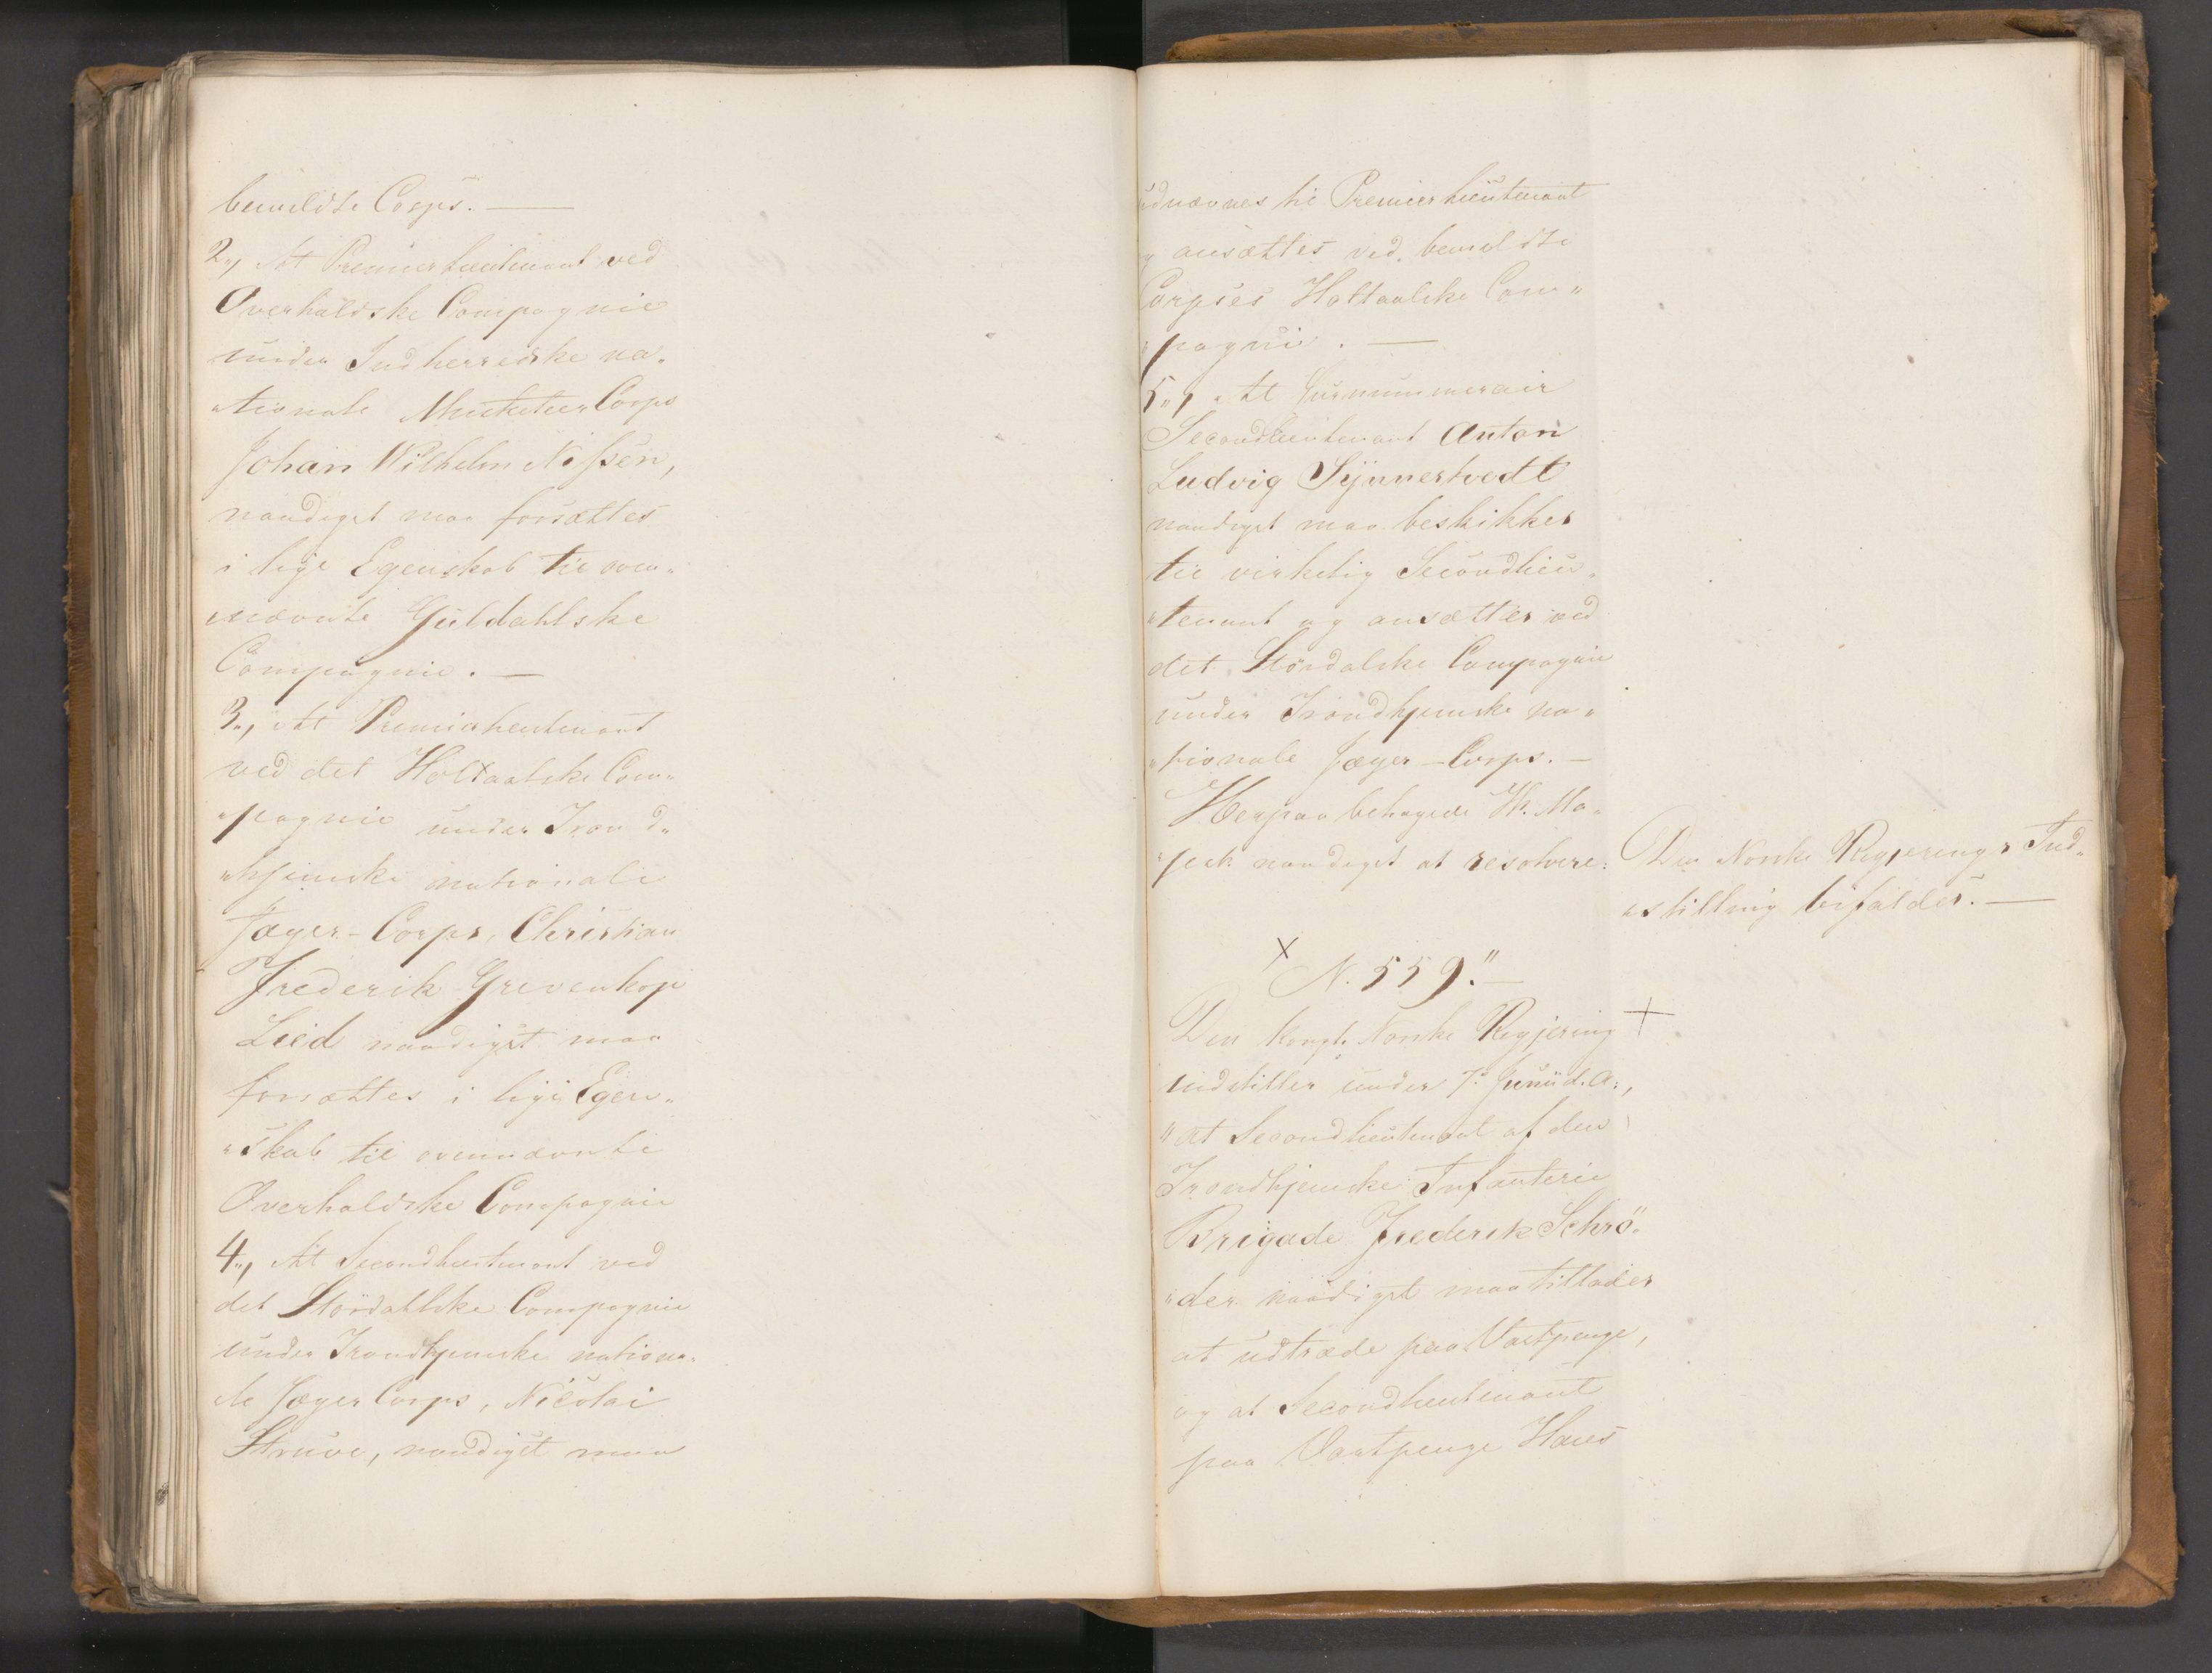 bemeldte Corps. —
2„, At Premierlieutenant ved
Overhaldske Compagnie
under Indherredske na„
„tionale Musketeer Corps
Johan Wilhelm Nissen,
naadigst maa forsættes
i lige Egenskab til oven„
nævnte Guldahlske
Compagnie. —
3„, At Premierlieutenant
ved det Holtaalske Com„
„pagnie under Trond„
„hjemske nationale
Jæger-Corps, Christian
Frederik Grevenkop
Lied naadigst maa
forsættes i lige Egen„
„skab til ovennævnte
Overhaldske Compagnie
4„, At Secondlieutenant ved
det Stördahlske Compagnie
under Trondhjemske nationa„
le Jæger Corps, Nicolai
Struve, naadigst maa
udnævnes til Premierlieutenant
og ansættes ved bemeldte
Corpses Holtaalske Com„
„pagnie. —
5„, At Surnummerair
Secondlieutenant Anton
Ludvig Synnestvedt
naadigst maa beskikkes
til virkelig Secondlieu„
„tenant og ansættes ved
det Stördalske Compagnie
under Trondhjemske na„
„tionale Jæger-Corps. —
Herpaa behagede H. Ma„
„jestt naadigst at resolvere:
Den Norske Regjerings Ind„
„stilling bifaldes. —
N. 559." —
Den Kongl. Norske Regjering
indstiller under 7. Junii d. A.,
"at Secondlieutenant af den
Trondhjemske Infanterie
Brigade Frederik Schrö„
„der naadigst maa tillades
at udtræde paa Vartpenge,
og at Secondlieutenant
paa Vartpenge Hans